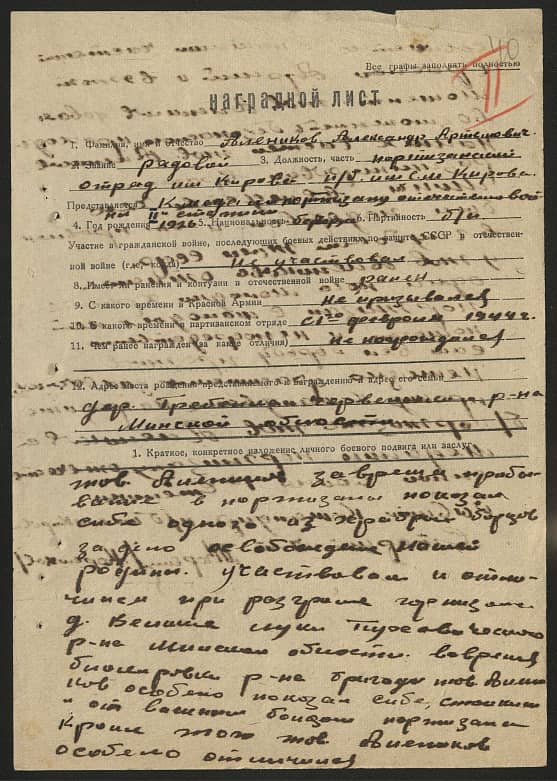 40
II
Все графы заполнять полностью
НАГРАДНОЙ ЛИСТ
1. Фамилия, имя и отчество Александр Артемович.
2. Звание рядовой 3. Должность, часть партизанский
отряд им Кирова п/б имени Кирова.
Представляется к медали партизану отечественной
II степени
4. Год рождения 1926 5. Национальность белорус 6. Партийность б/п
Участие в гражданской войне, последующих боевых действиях по защите СССР и отечествен-
ной войне (где, когда) Не участвовал
8. Имеет ли ранения и контузии в отечественной войне ранен
9. С какого времени в Красной Армии Не призывался
10. С какого времени в партизанском отряде с 1го февраля 1944 г.
11. Чем ранее награжден (за какие отличия) Не награждался
12. Адрес места рождения представляемого к награждению и адрес его семьи
дер. Червенского р-на
Минской области
1. Краткое, конкретное изложение личного боевого подвига или заслуг
тов. за время пребы-
вания в партизанах показал
себя одного из храбрых борцов
за дело освобождения нашей
родины. Участвовал и отли-
чился при разгроме гарнизона
д. Пуховичского
р-на Минской области. Во время
блокировки р-на бригады тов.
ков особено показал себя, стойким
и отважным бойцом партизаном
Кроме того тов
особено отличился